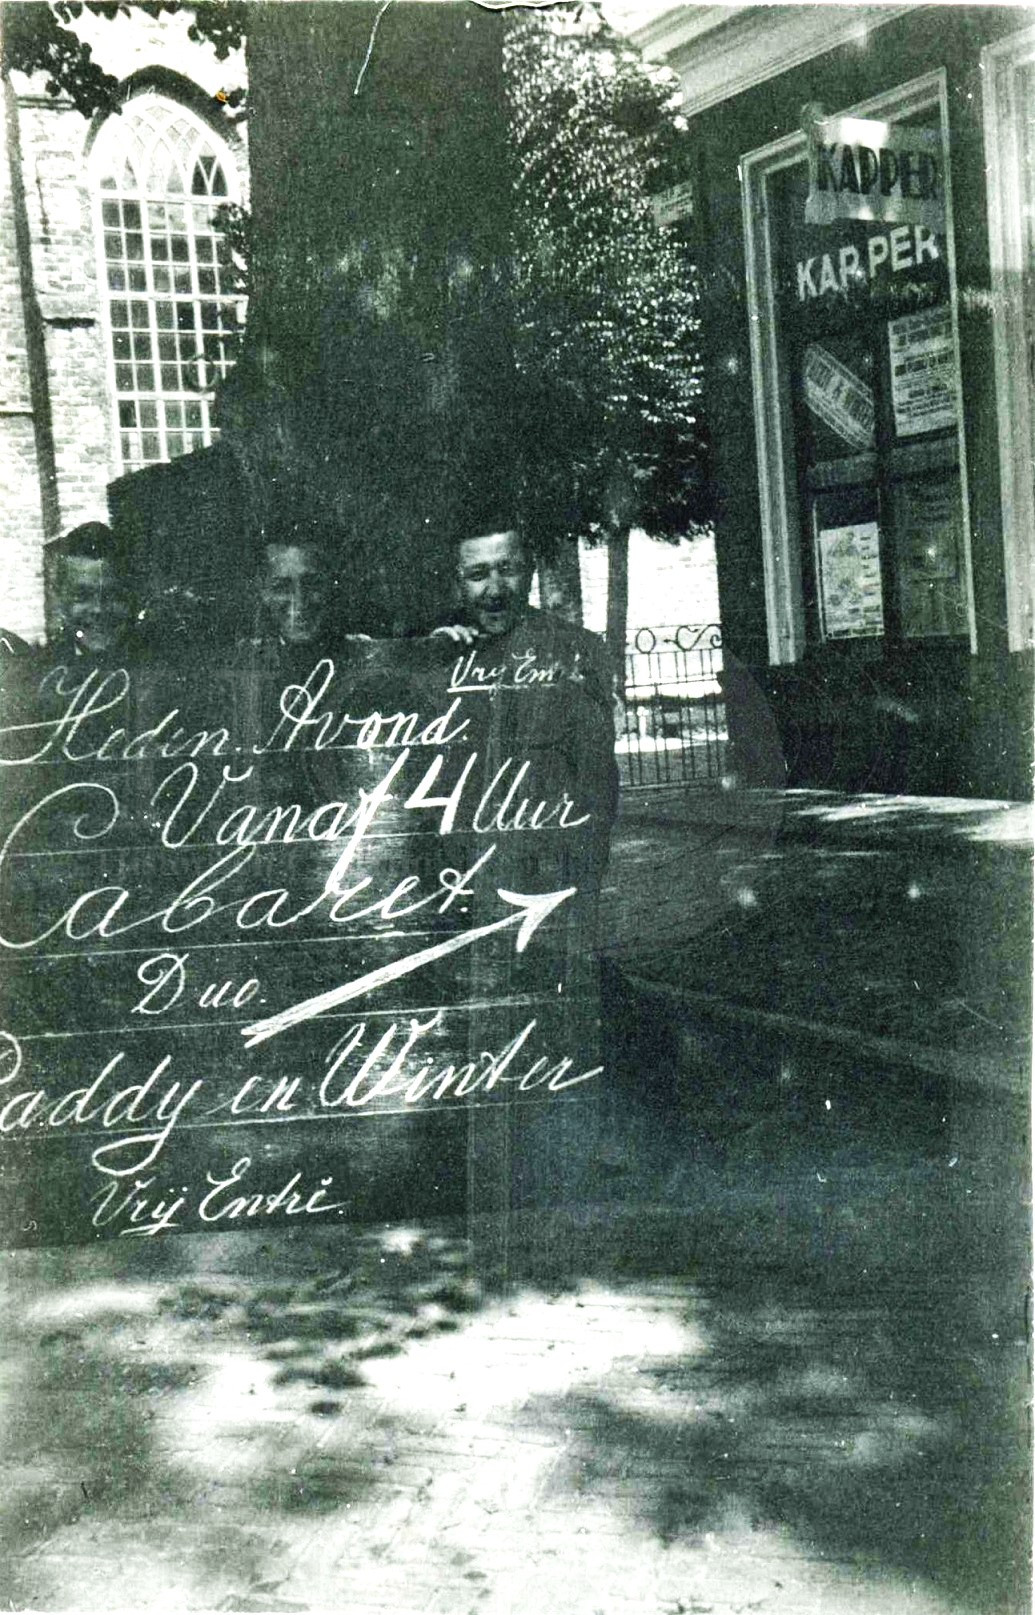 KAPPER
KAPPER
Vrij Ent
Heden Avond.
Vanaf 4 Uur
Cabaret.
Duo.
Paddy en Winter
Vrij Entré.